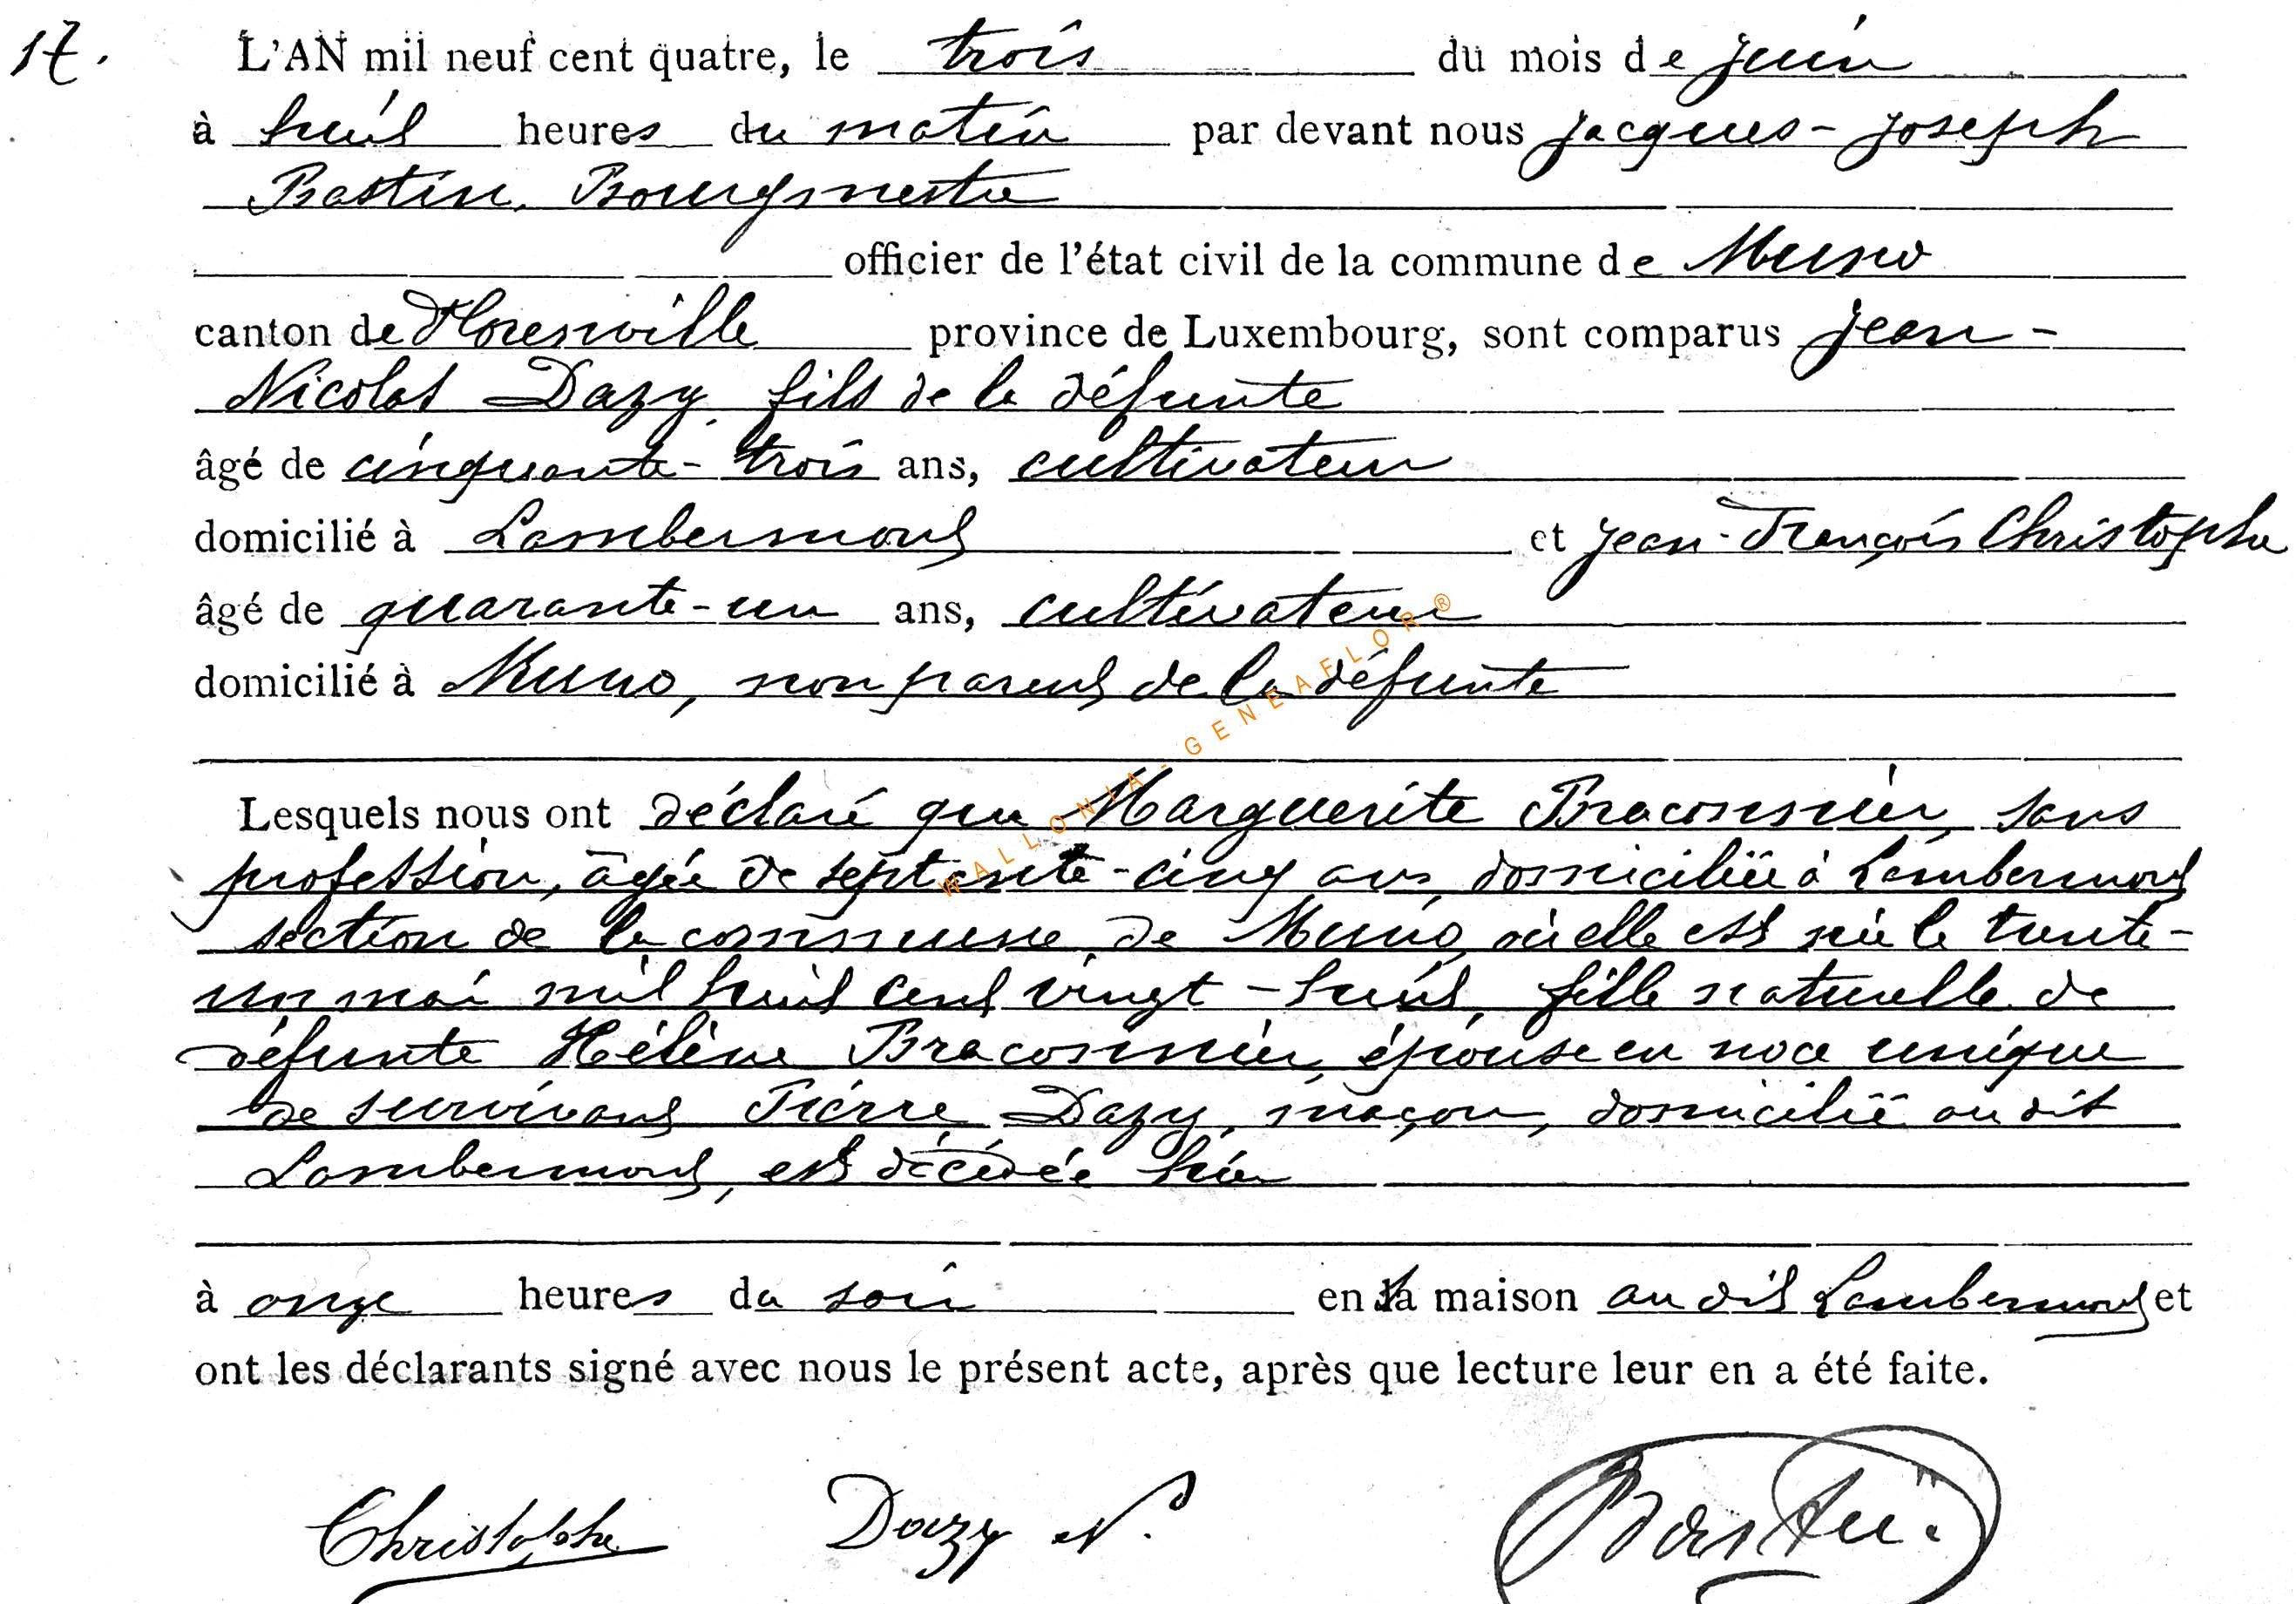 17.
L'AN mil neuf cent quatre, le trois du mois de juin
à huit heures du matin par devant nous Jacques-Joseph
Bastin, Bourgmestre
officier de l'état civil de la commune de Muno
canton de Florenville province de Luxembourg, sont comparus Jean-
Nicolas Dazy, fils de la défunte
âgé de cinquante-trois ans, cultivateur
domicilié à Lambermont et Jean-François Christophe
âgé de quarante-un ans, cultivateur
domicilié à Muno, non parent de la défunte
Lesquels nous ont déclaré que Marguerite Braconnier, sans
profession, âgée de septante-cinq ans, domiciliée à Lambermont
section de la commune de Muno, où elle est née le trente-
un mai mil huit cent vingt-huit, fille naturelle de
défunte Hélène Braconnier, épouse en noce unique
de survivant Pierre Dazy, maçon, domicilié au dit
Lambermont, est décédée hier
à onze heures du soir en sa maison au dit Lambermont et
ont les déclarants signé avec nous le présent acte, après que lecture leur en a été faite.
Christophe Dazy N. Bastin.
WALLONIA-GENEAFLOR®